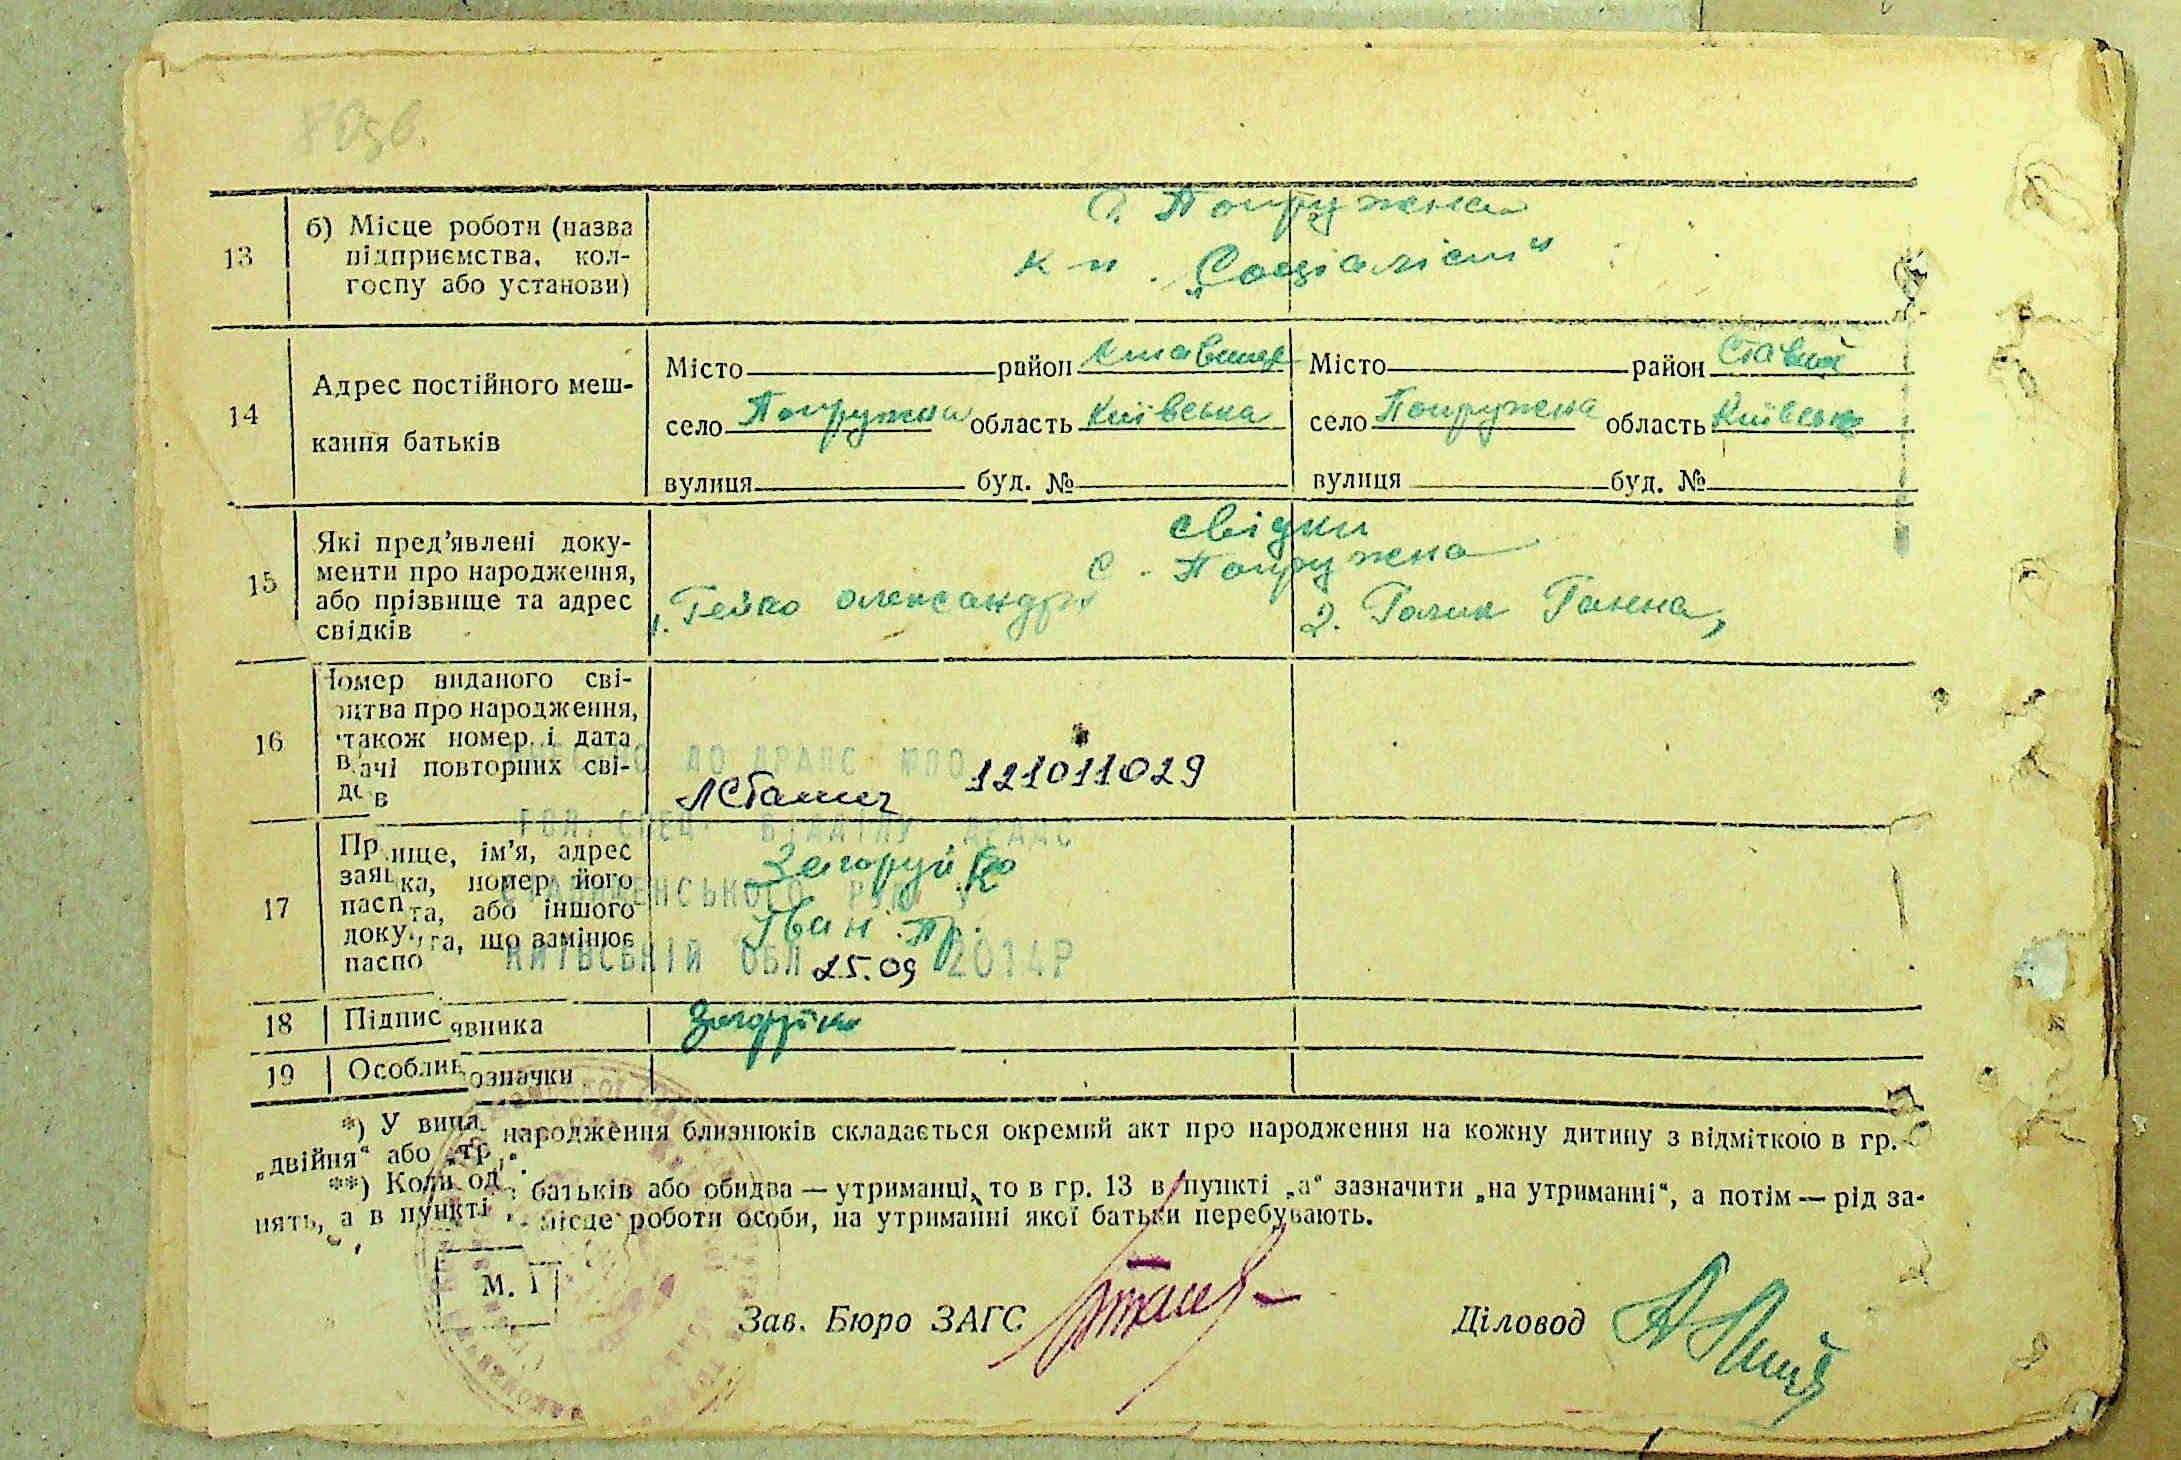 80зв.
13
б) Місце роботи (назва
підприємства, кол-
госпу або установи)
с. Попружна
к-п. „Соціаліст“
14
Адрес постійного меш-
кання батьків
Місто район Ставище
село Попружна область Київська
вулиця буд. №
Місто район Ставищ
село Попружна область Київська
вулиця буд. №
15
Які пред’явлені доку-
менти про народження,
або прізвище та адрес
свідків
свідки
с. Попружна
1. Гейко Олександр
2. Голик Ганна,
16
Номер виданого сві-
цтва про народження,
також номер і дата
ачі повторних сві-
в
ДО ДРАЦС №00 121011029
ГОЛ. СПЕЦ. ВІДДІЛУ ДРАЦС
17
ище, ім’я, адрес
ка, номер його
та, або іншого
та, що замінює
паспо
Загоруйко
Іван Пр.
КИЇВСЬКІЙ ОБЛ 25.09 2014Р
18
Підпис явника
Загоруйко
19
Особлив означки
*) У випа народження близнюків складається окремий акт про народження на кожну дитину з відміткою в гр.
„двійня“ або „тр
**) Коли од з батьків або обидва — утриманці, то в гр. 13 в пункті „а“ зазначити „на утриманні“, а потім — рід за-
нять, а в пункті місце роботи особи, на утриманні якої батьки перебувають.
М.
Зав. Бюро ЗАГС
Діловод